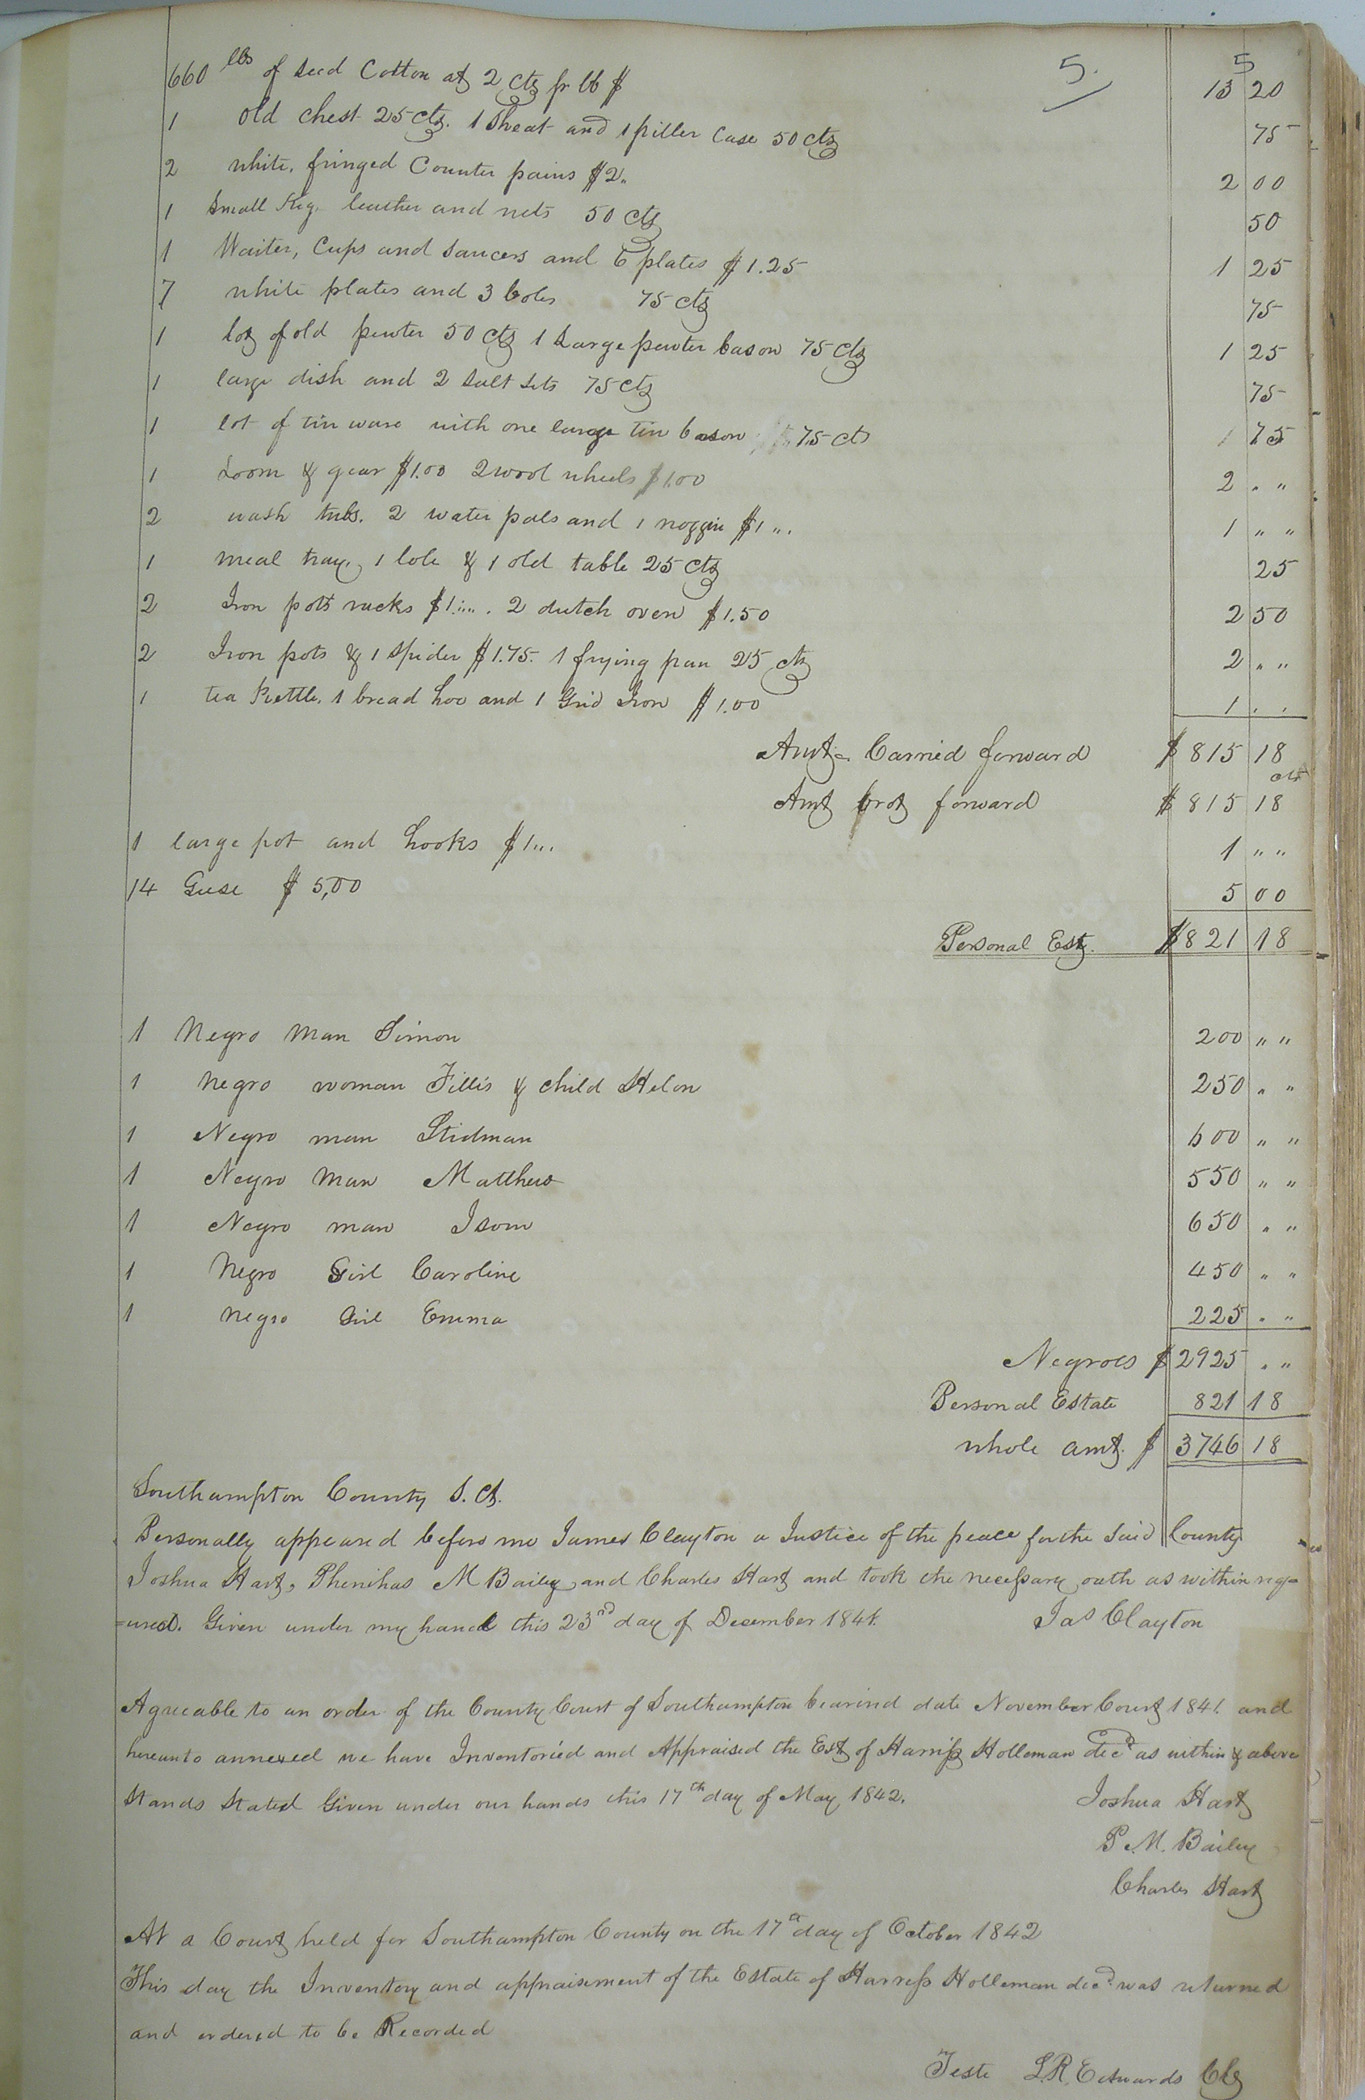 5. 5
660 lbs of seed Cotton at 2 cts pr lb $ 13 20
1 old chest 25 cts. 1 Sheat and 1 piller Case 50 cts 75
2 white, fringed Counter pains $2„ 2 00
1 Small Keg. leather and nets 50 cts 50
1 Waiter, Cups and Saucers and 6 plates $1.25 1 25
7 white plates and 3 boles 75 cts 75
1 lot of old pewter 50 cts 1 Large pewter bason 75 cts 1 25
1 large dish and 2 Salt sets 75 cts 75
1 lot of tin ware with one large tin bason 75 cts 75
1 Loom & gear $1.00 2 wool wheels $1.00 2 „ „
2 wash tubs. 2 water pales and 1 noggin $1 „. 1 „ „
1 meal tray, 1 bole & 1 old table 25 cts 25
2 Iron pots racks $1.... 2 dutch oven $1.50 2 50
2 Iron pots & 1 Spider $1.75. 1 frying pan 25 cts 2 „ „
1 tea Kettle, 1 bread hoe and 1 Grid Iron $1.00 1 . .
Amt. Carried forward $ 815 18
cts
Amt brot forward $ 815 18
1 large pot and hooks $1... 1 „ „
14 Geese $ 5,00 5 00
Personal Est. $821 18
1 Negro Man Simon 200 „ „
1 negro woman Fillis & child Helon 250 „ „
1 Negro man Stidman 600 „ „
1 Negro Man Matthews 550 „ „
1 Negro man Isom 650 „ „
1 Negro Girl Caroline 450 „ „
1 negro Girl Emma 225 „ „
Negroes $ 2925 „ „
Personal Estate 821 18
whole amt. $ 3746 18
Southampton County S. Ct.
Personally appeared before me James Clayton a Justice of the peace for the Said County
Joshua Hart, Phenihas M Bailey and Charles Hart and took the necessary oath as within req=
=ured. Given under my hand this 23rd day of December 1841. Jas Clayton
Agreeable to an order of the County Court of Southampton bearind date November Court 1841. and
hereunto annexed we have Inventoried and Appraised the Est of Harriss Holleman decd as within & above
Stands Stated Given under our hands this 17th day of May 1842. Joshua Hart
P. M. Bailey
Charles Hart
At a Court held for Southampton County on the 17th day of October 1842
This day the Inventory and appraisement of the Estate of Harress Holleman decd was returned
and ordered to be Recorded
Teste L.R. Edwards Clk